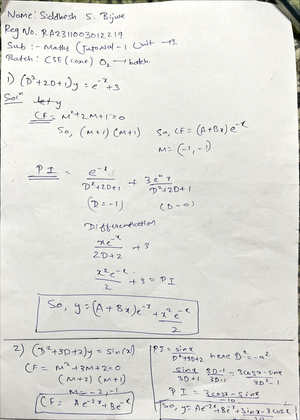 Name: Siddhesh S. Bijwe
Reg No. RA2311003012219
Sub :- Maths (Tutorial-1 Unit -
Batch: CSE (core) O2 → batch.
1) (D²+2D+1)y = e^-x +3
Sol^n let y
CF = M²+2M+1=0
So, (M+1)(M+1) So, CF = (A+Bx)e^-x
M= (-1,-1)
PI = e^-x / D²+2D+1 + 3e^0x / D²+2D+1
(D=-1) (D=0)
Differentiation
xe^-x / 2D+2 + 3
x²e^-x / 2 + 3 = PI
So, y = (A+Bx)e^-x + x²e^-x / 2
2) (D²+3D+2)y = sin(x)
CF = M²+3M+2=0
(M+2)(M+1)
M=-2,-1
CF = Ae^-2x + Be^-x
PI = sinx / D²+3D+2 here D²=-a²
sinx / 3D+1 3D-1 / 3D-1 = 3cosx-sinx / 3D²-1
PI = 3cosx-sinx / -10
So, y = Ae^-2x+Be^-x+sinx-3cosx / 10